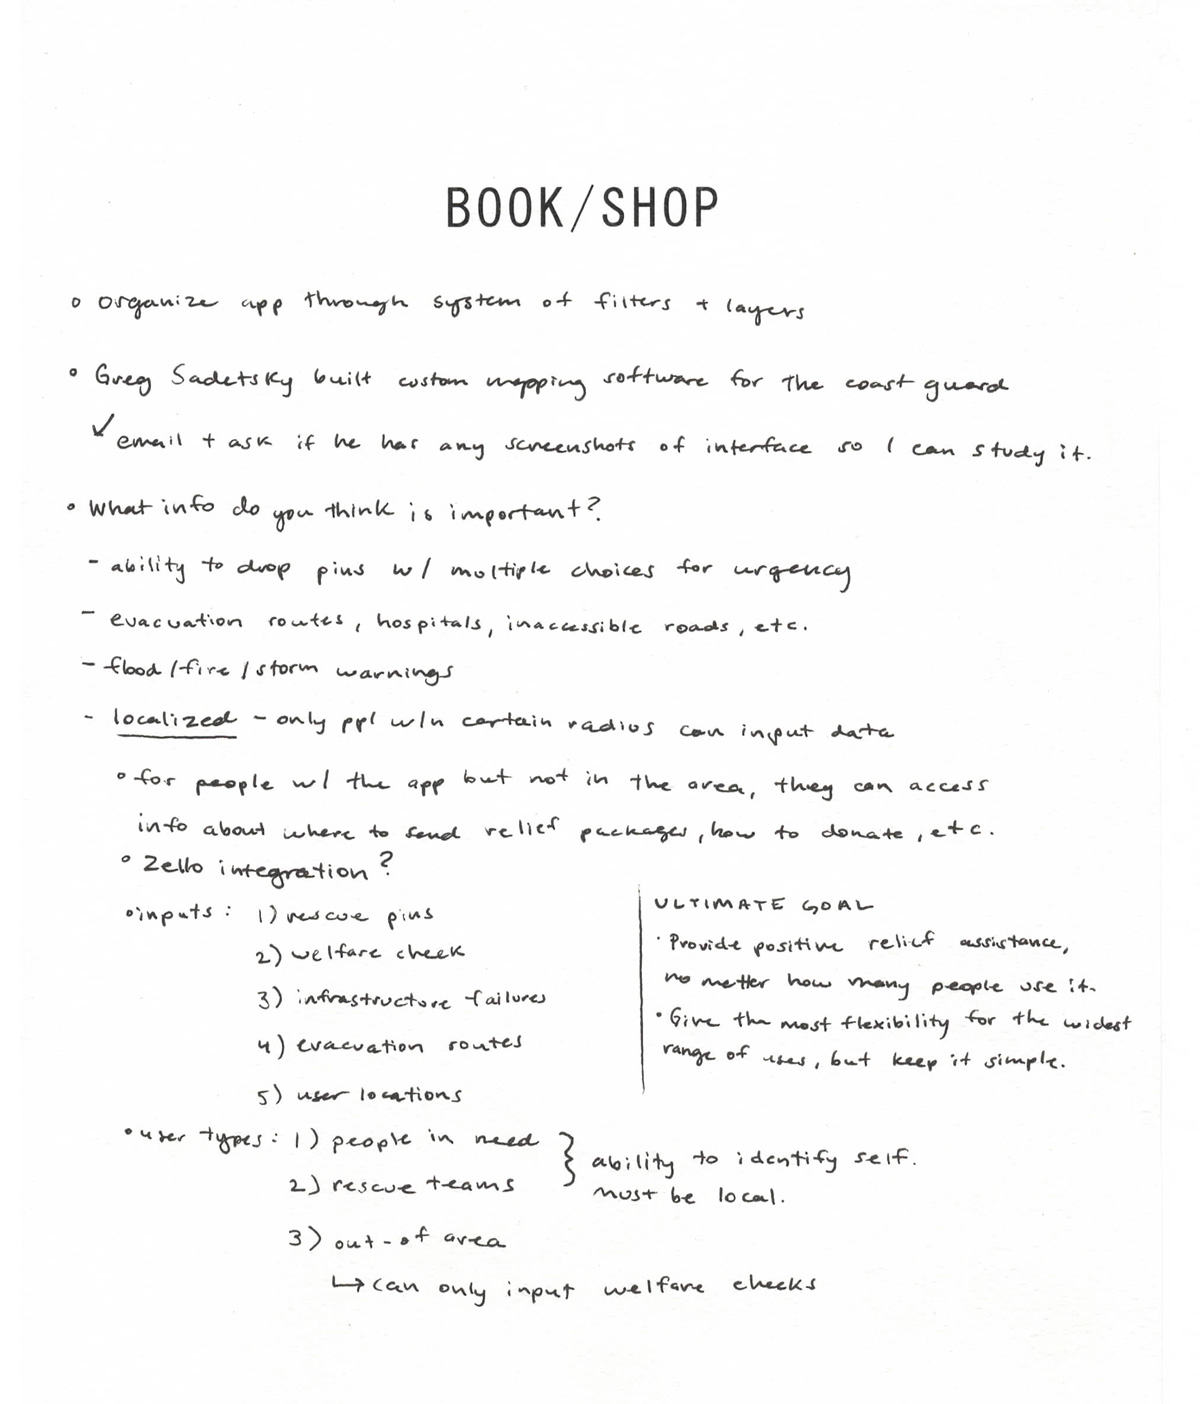 BOOK/SHOP
o organize app through system of filters + layers
o Greg Sadetsky built custom mapping software for the coast guard
↙ email + ask if he has any screenshots of interface so I can study it.
o What info do you think is important?
- ability to drop pins w/ multiple choices for urgency
- evacuation routes, hospitals, inaccessible roads, etc.
- flood/fire/storm warnings
- localized - only ppl w/n certain radios can input data
o for people w/ the app but not in the area, they can access
info about where to send relief packages, how to donate, etc.
o Zello integration?
o inputs: 1) rescue pins
2) welfare check
3) infrastructure failures
4) evacuation routes
5) user locations
ULTIMATE GOAL
· Provide positive relief assistance,
no matter how many people use it.
· Give the most flexibility for the widest
range of uses, but keep it simple.
• user types: 1) people in need
2) rescue teams
} ability to identify self.
must be local.
3) out-of area
↳ can only input welfare checks